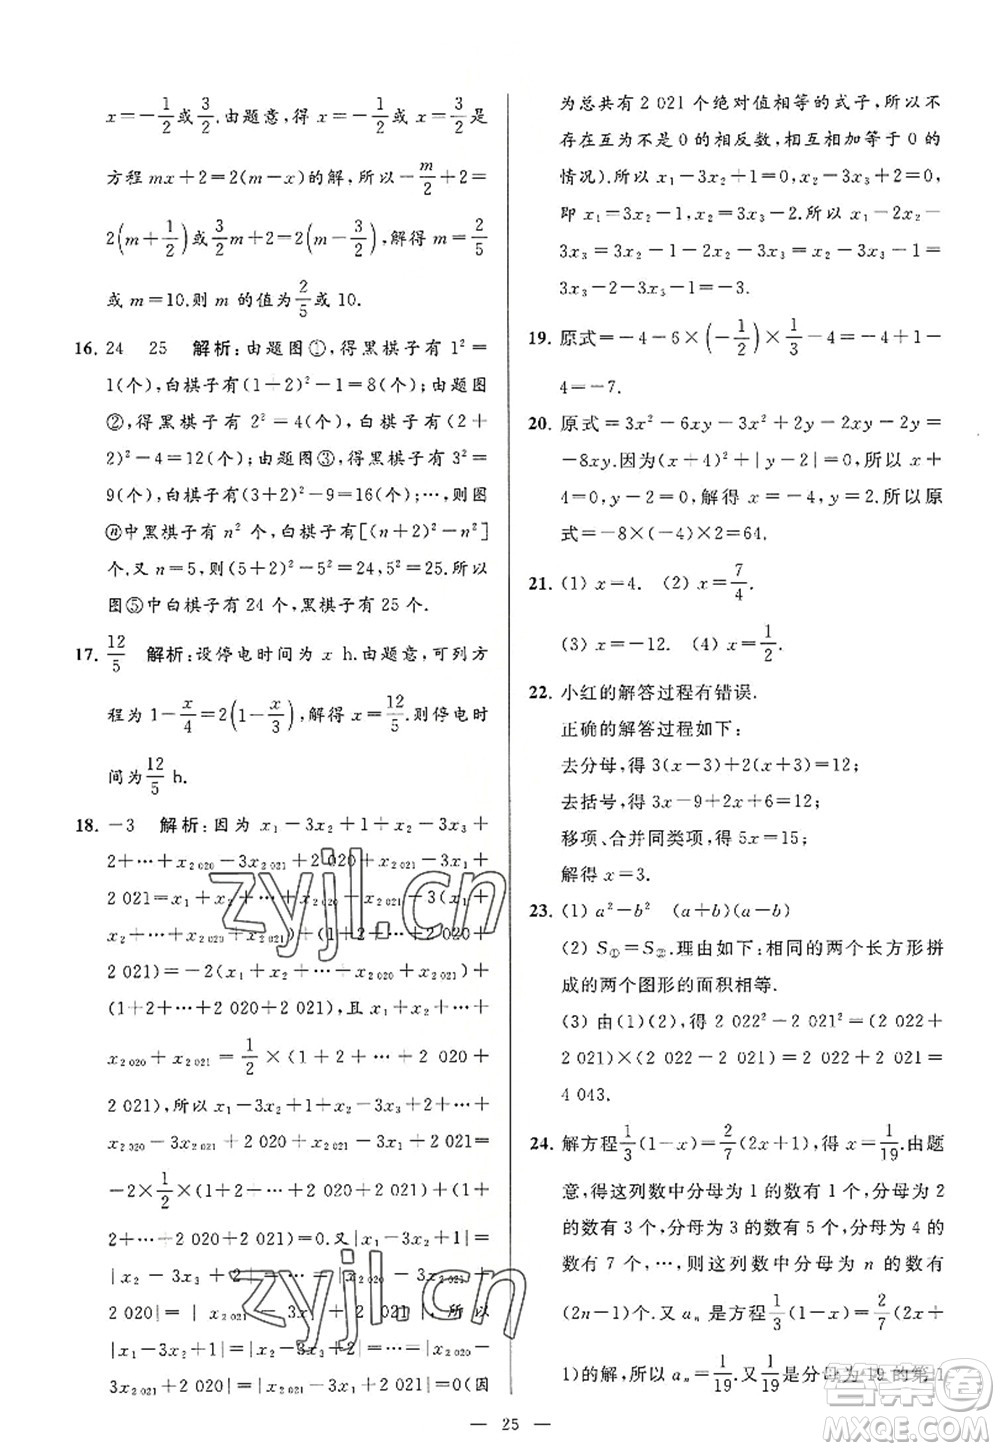 x=-1/2或3/2.由题意,得 x=-1/2或3/2是
方程 mx+2=2(m-x)的解,所以-m/2+2=
2(m+1/2)或3/2m+2=2(m-3/2),解得 m=2/5
或 m=10.则 m 的值为2/5或 10.
16. 24 25 解析:由题图①,得黑棋子有 1²=
1(个),白棋子有(1+2)²-1=8(个);由题图
②,得黑棋子有 2²=4(个),白棋子有(2+
2)²-4=12(个);由题图③,得黑棋子有 3²=
9(个),白棋子有(3+2)²-9=16(个);…,则图
ⓝ中黑棋子有 n² 个,白棋子有[(n+2)²-n²]
个.又 n=5,则(5+2)²-5²=24,5²=25.所以
图⑤中白棋子有 24 个,黑棋子有 25 个.
17. 12/5 解析:设停电时间为 x h.由题意,可列方
程为 1-x/4=2(1-x/3),解得 x=12/5.则停电时
间为12/5 h.
18. -3 解析:因为 x₁-3x₂+1+x₂-3x₃+
2+…+x₂ ₀₂₀-3x₂ ₀₂₁+2 020+x₂ ₀₂₁-3x₁+
2 021=(x₁+x₂+…+x₂ ₀₂₁)-3(x₁+
x₂+…+x₂ ₀₂₁)+(1+2+…+2 020+
2 021)=-2(x₁+x₂+…+x₂ ₀₂₁)+
(1+2+…+2 020+2 021),且 x₁+x₂+…+
x₂ ₀₂₀+x₂ ₀₂₁=1/2×(1+2+…+2 020+
2 021),所以 x₁-3x₂+1+x₂-3x₃+2+…+
x₂ ₀₂₀-3x₂ ₀₂₁+2 020+x₂ ₀₂₁-3x₁+2 021=
-2×1/2×(1+2+…+2 020+2 021)+(1+
2+…+2 020+2 021)=0.又|x₁-3x₂+1|=
|x₂-3x₃+2|=…=|x₂ ₀₂₀-3x₂ ₀₂₁+
2 020|=|x₂ ₀₂₁-3x₁+2 021|,所以
|x₁-3x₂+1|=|x₂-3x₃+2|=…=|x₂ ₀₂₁-
3x₁+2 021|=0(因
为总共有 2 021 个绝对值相等的式子,所以不
存在互为不是0的相反数,相互相加等于0的
情况).所以 x₁-3x₂+1=0,x₂-3x₃+2=0,
即 x₁=3x₂-1,x₂=3x₃-2.所以 x₁-2x₂-
3x₃=3x₂-1-2x₂-3x₃=x₂-3x₃-1=
3x₃-2-3x₃-1=-3.
19. 原式=-4-6×(-1/2)×1/3-4=-4+1-
4=-7.
20. 原式=3x²-6xy-3x²+2y-2xy-2y=
-8xy.因为(x+4)²+|y-2|=0,所以 x+
4=0,y-2=0,解得 x=-4,y=2.所以原
式=-8×(-4)×2=64.
21. (1) x=4. (2) x=7/4.
(3) x=-12. (4) x=1/2.
22. 小红的解答过程有错误.
正确的解答过程如下:
去分母,得 3(x-3)+2(x+3)=12;
去括号,得 3x-9+2x+6=12;
移项、合并同类项,得 5x=15;
解得 x=3.
23. (1) a²-b² (a+b)(a-b)
(2) S①=S②.理由如下:相同的两个长方形拼
成的两个图形的面积相等.
(3) 由(1)(2),得 2 022²-2 021²=(2 022+
2 021)×(2 022-2 021)=4 043×1=
4 043.
24. 解方程1/3(1-x)=2/7(2x+1),得 x=1/19.由题
意,得这列数中分母为 1 的数有 1 个,分母为 2
的数有 3 个,分母为 3 的数有 5 个,分母为 4 的
数有 7 个,…,则这列数中分母为 n 的数有
(2n-1)个.又 aₙ 是方程1/3(1-x)=2/7(2x+
1)的解,所以 aₙ=1/19.又1/19是分母为 19 的第 1
— 25 —
zyjl.cn
zyjl.cn
答案圈
MXQE.COM